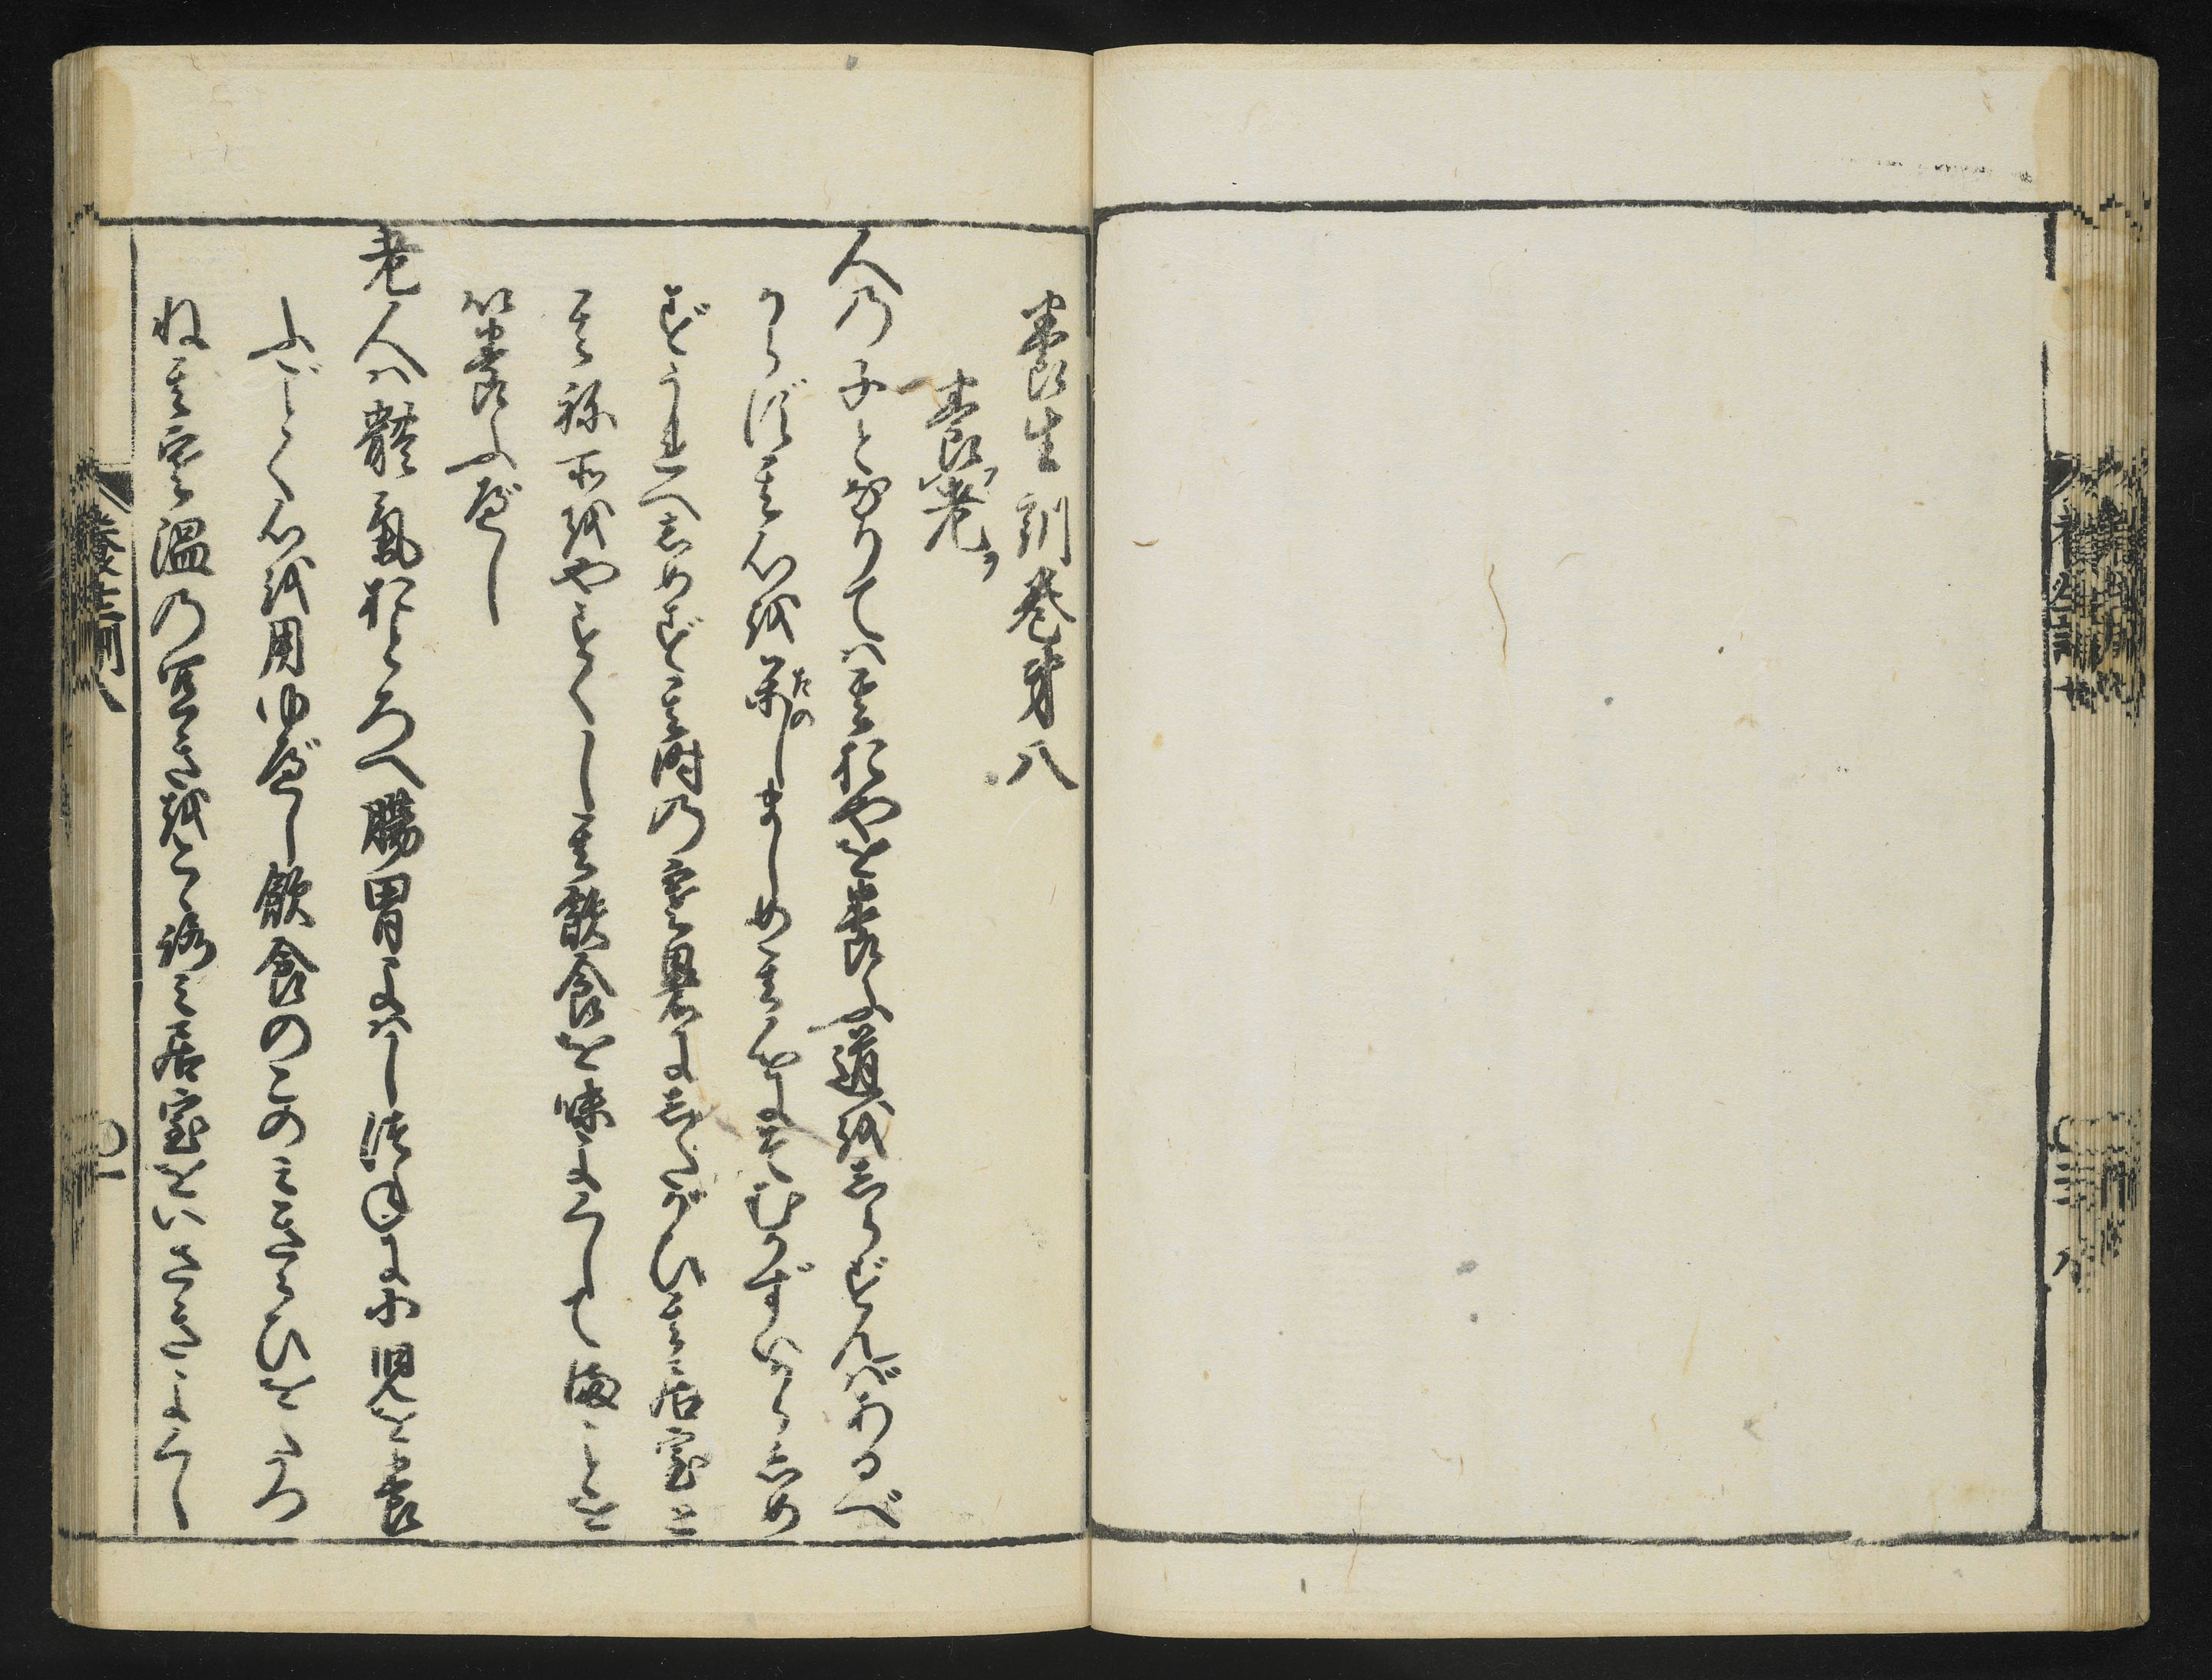 養生訓巻第八
養老
人乃子となりては其おやを養ふ道をしらずんばあるべ
からず其心を楽しましめ其心にそむかずいからしめ
ずうれへしめず其時の寒暑にしたがひ其居室と
其祢所をやすくし其飲食を味よくしてまことを
以養ふべし
老人は體氣おとろへ腸胃よはしつねに小児を養
ふごとく心を用ゆべし飲食のこのみきらひをたつ
ね其寒温の宜きをこゝろみ居室をいさぎよくし
養生訓八